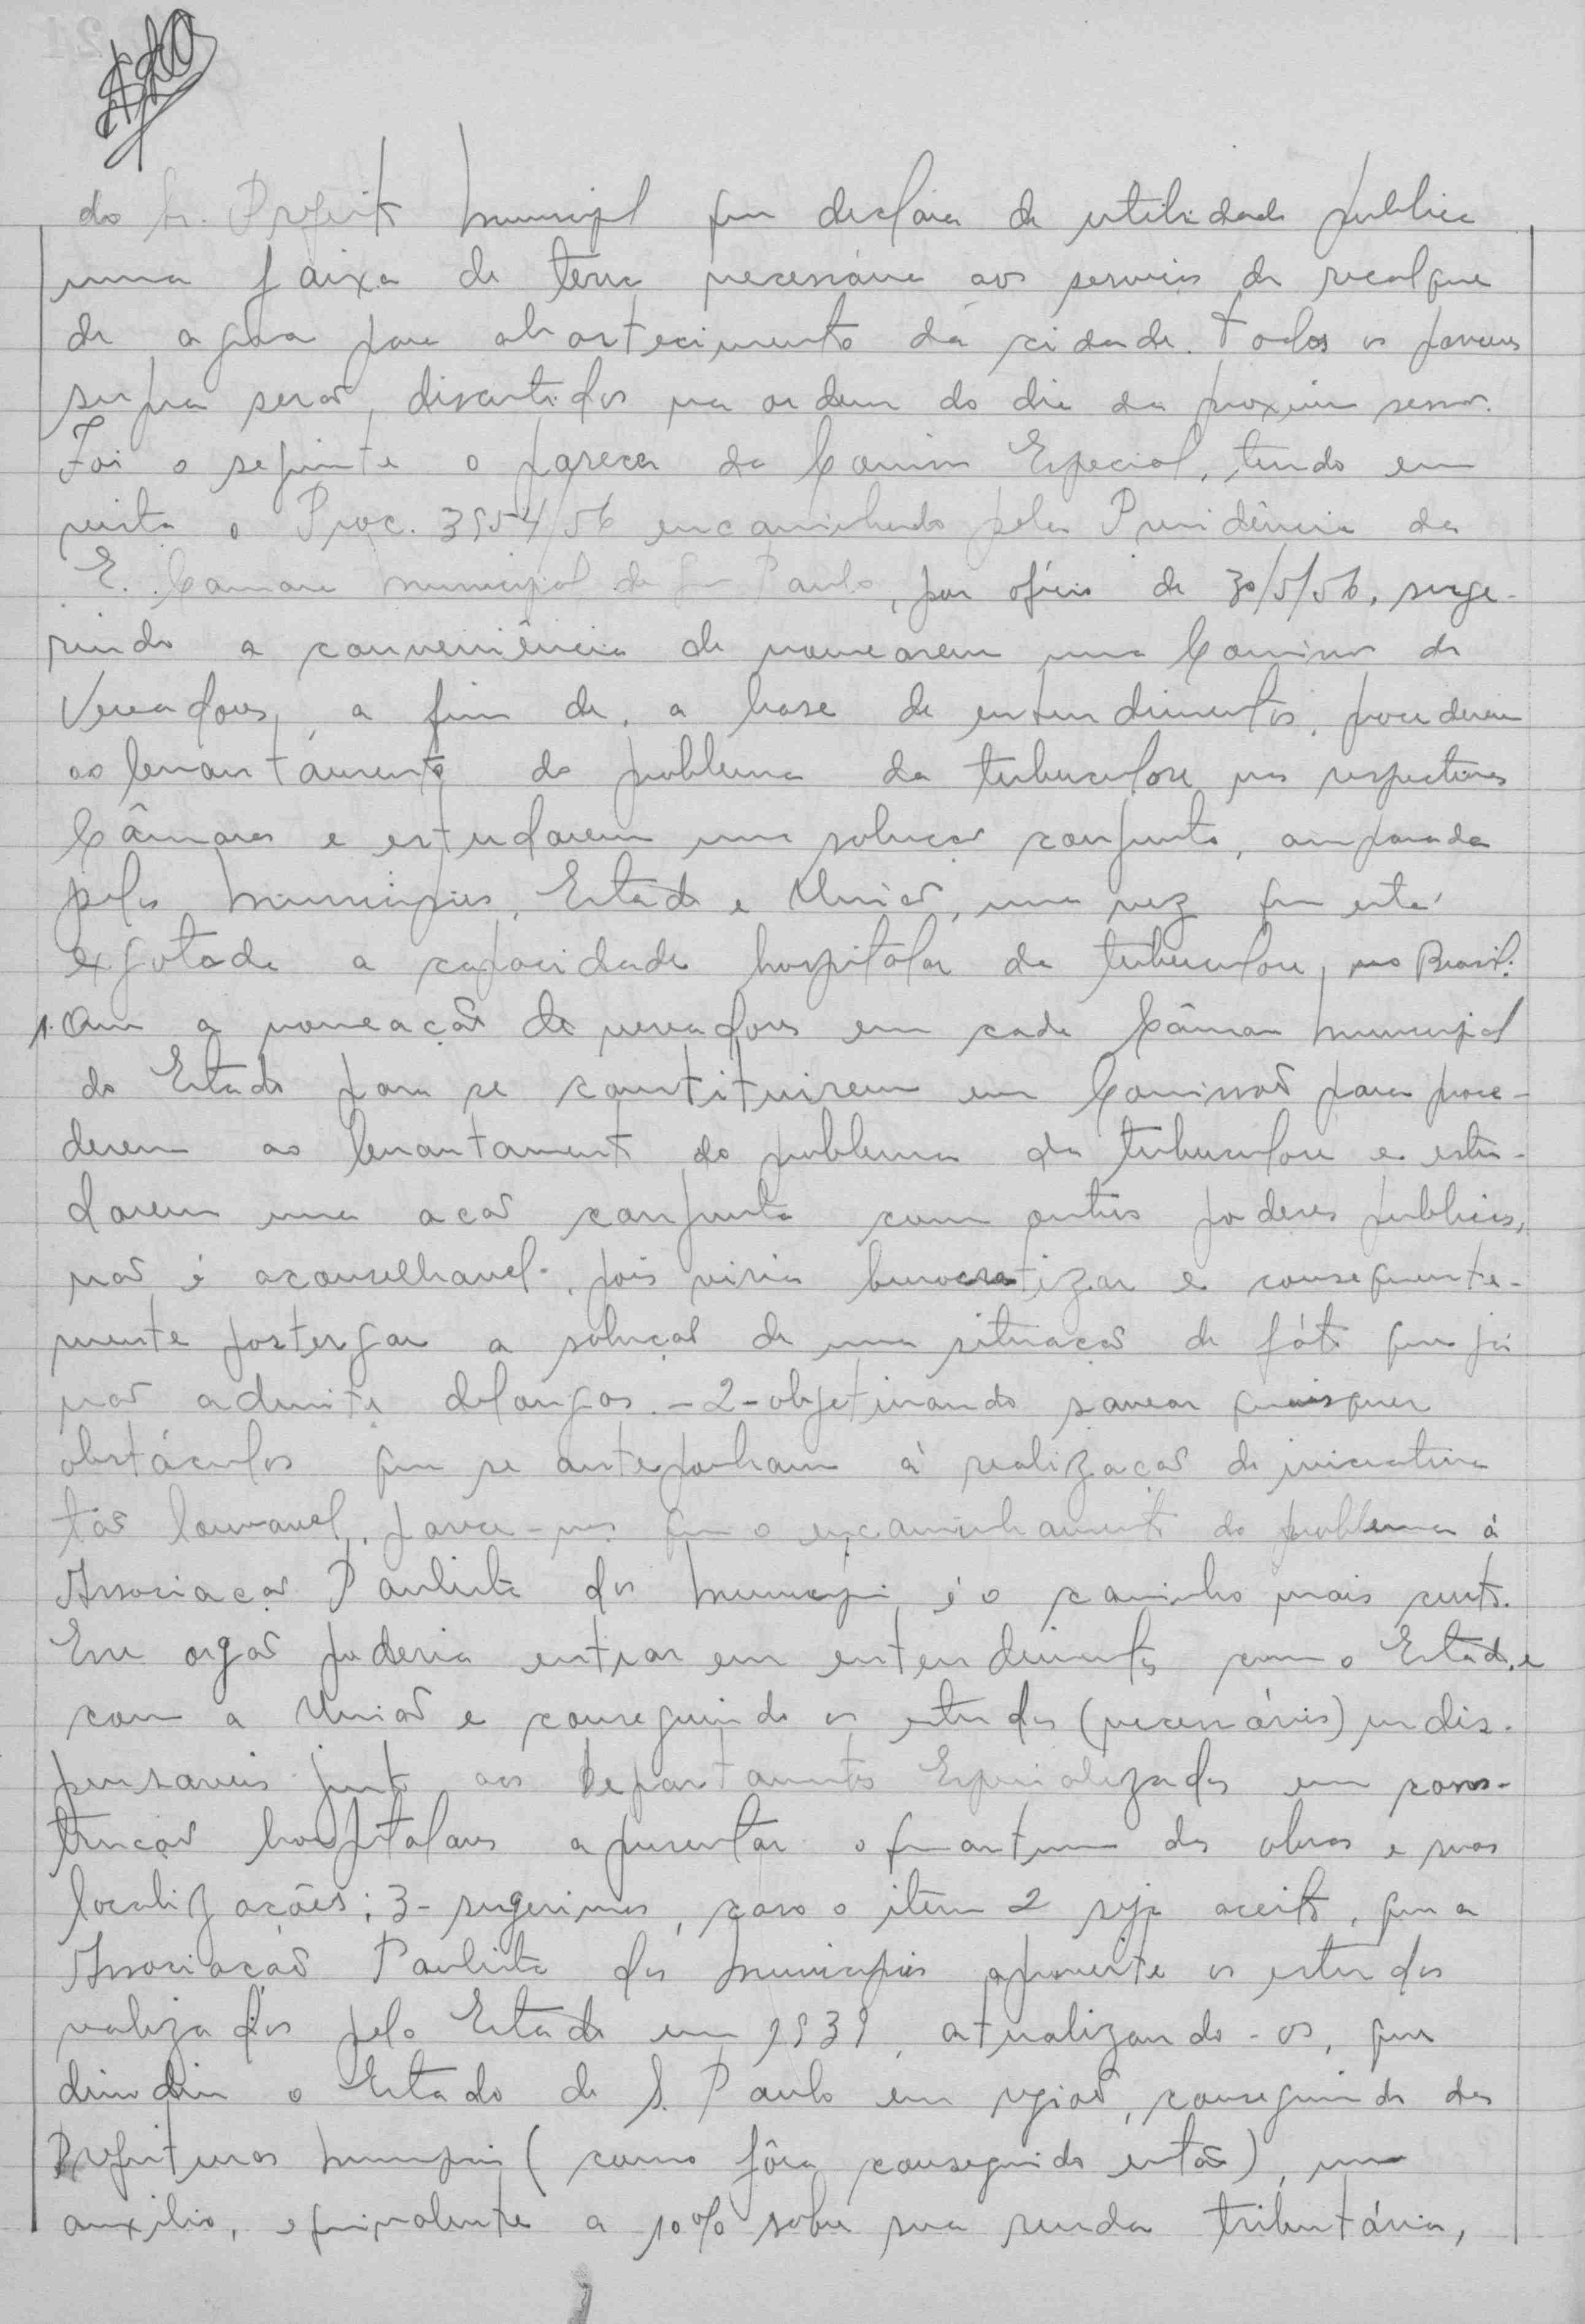 do Sr. Prefeito Municipal que declara de utilidade publica
uma faixa de terra necessária aos serviços de recalque
de agua para abastecimento da cidade. Todos os pareceres
supra serão, discutidos na ordem do dia da proxima sessão.
Foi o seguinte o parecer da Comissão Especial, tendo em
vista o Proc. 3954/56 encaminhado pela Presidência da
E. Camara Municipal de São Paulo, por oficio de 30/5/56, suge-
rindo a conveniência de nomearem uma Comissão de
Vereadores, a fim de, a base de entendimentos, procederem
ao levantamento do problema da tuberculose nas respectivas
Câmaras e estudarem uma solução conjunta, amparada
pelos Municipios, Estado e União, uma vez que está
esgotada a capacidade hospitalar da tuberculose, no Brasil:
1. Que a nomeação de vereadores em cada Câmara Municipal
do Estado para se constituirem em Comissão para proce-
derem ao levantamento do problema da tuberculose e estu-
darem uma acão conjunta com outros poderes publicos,
não é aconselhavel, pois viria burocratizar e consequente-
mente postergar a solução de uma situação de fáto que já
não admite delongas. - 2 - objetivando sanear quaisquer
obstáculos que se anteponham á realização de iniciativa
tão louvavel, parece-nos que o encaminhamento do problema á
Associação Paulista dos Municipios é o caminho mais certo.
Esse orgão poderia entrar em entendimentos com o Estado e
com a União e conseguindo os estudos (necessários) indis-
pensaveis junto aos Departamentos Especializados em cons-
trucão hospitalares apresentar o quantum das obras e suas
localizações; 3 - sugerimos, caso o item 2 seja aceito, que a
Associação Paulista dos Municipios aproveite os estudos
realizados pelo Estado em 1939, atualizando-os, que
dividiu o Estado de S. Paulo em região, conseguindo das
Prefeituras Municipais (como fôra conseguido então), um
auxilio, equivalente a 10% sobre sua renda tributária,